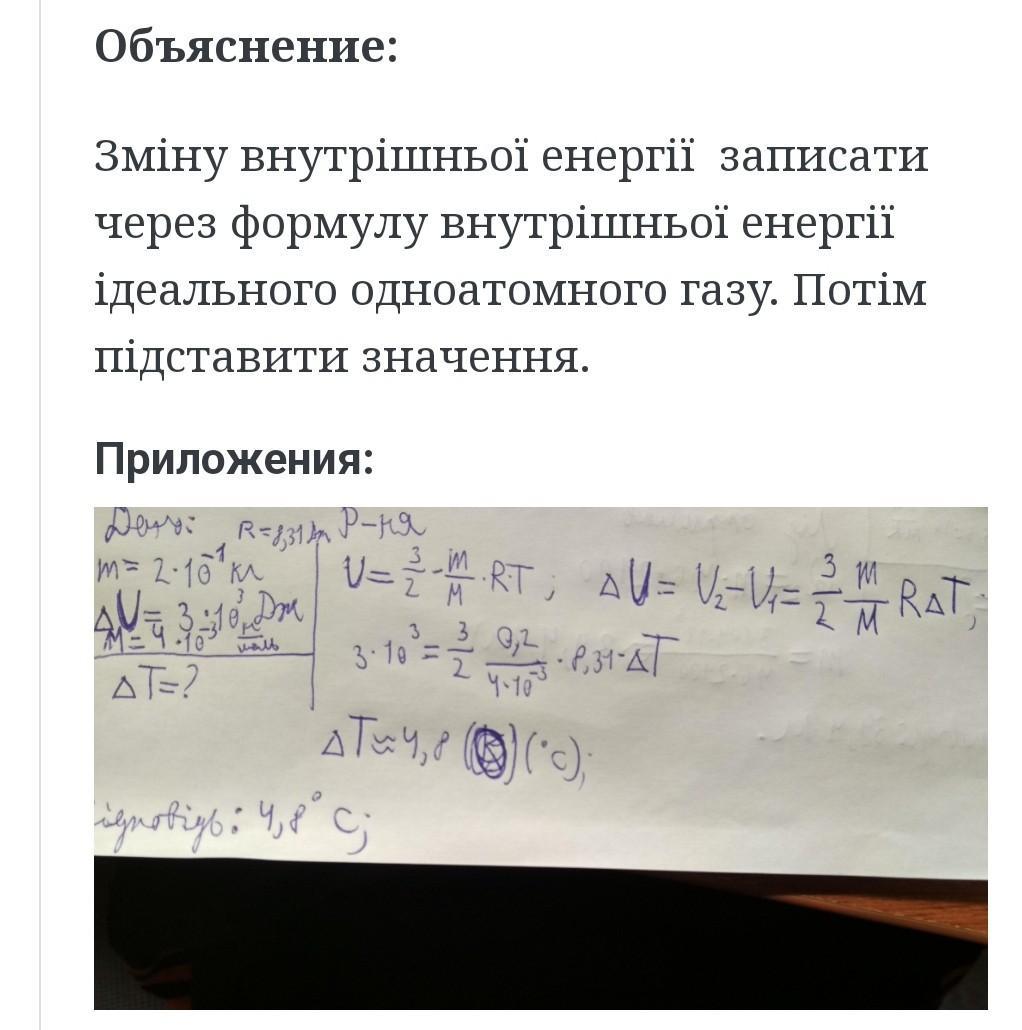 Объяснение:
Зміну внутрішньої енергії записати
через формулу внутрішньої енергії
ідеального одноатомного газу. Потім
підставити значення.
Приложения:
Дано: R=8,31 Р-ня
m= 2·10⁻¹ кг
ΔU= 3·10³ Дж
M=4·10⁻³ кг/моль
ΔT=?
U= 3/2 - m/M ·R·T; ΔU= U₂-U₁= 3/2 m/M RΔT;
3·10³= 3/2 0,2/4·10⁻³ ·8,31·ΔT
ΔT≈4,8 (°C);
ідповідь: 4,8°C;